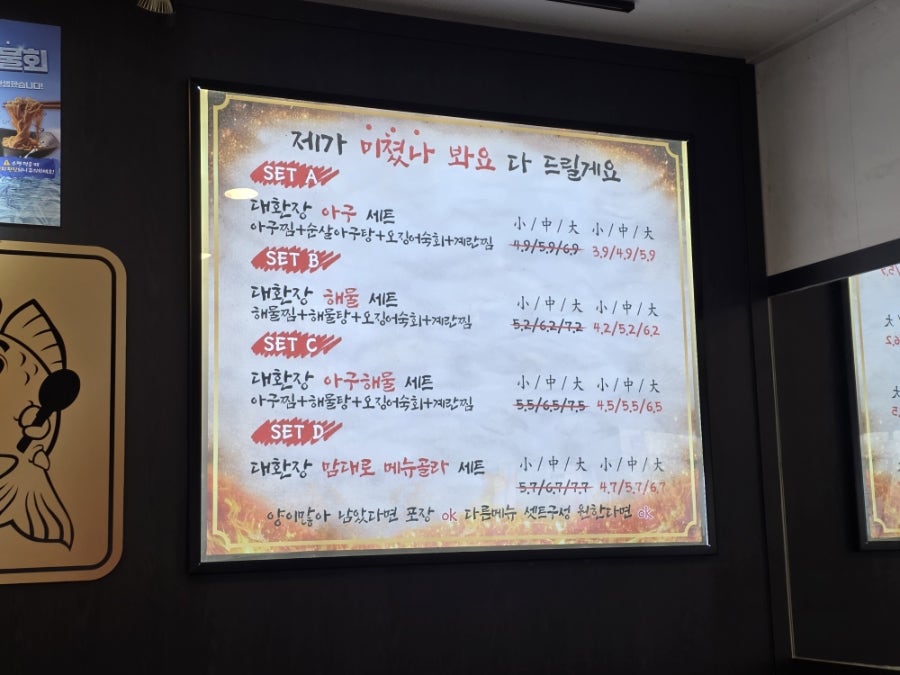 물회
제가 미쳤나 봐요 다 드릴게요
SET A
대환장 아구 세트
小/中/大 小/中/大
아구찜+순살아구탕+오징어숙회+계란찜
4.9/5.9/6.9 3.9/4.9/5.9
SET B
대환장 해물 세트
小/中/大 小/中/大
해물찜+해물탕+오징어숙회+계란찜
5.2/6.2/7.2 4.2/5.2/6.2
SET C
대환장 아구해물 세트
小/中/大 小/中/大
아구찜+해물탕+오징어숙회+계란찜
5.5/6.5/7.5 4.5/5.5/6.5
SET D
대환장 맘대로 메뉴골라 세트
小/中/大 小/中/大
5.7/6.7/7.7 4.7/5.7/6.7
양이많아 남았다면 포장 ok 다른메뉴 셋트구성 원한다면 ok